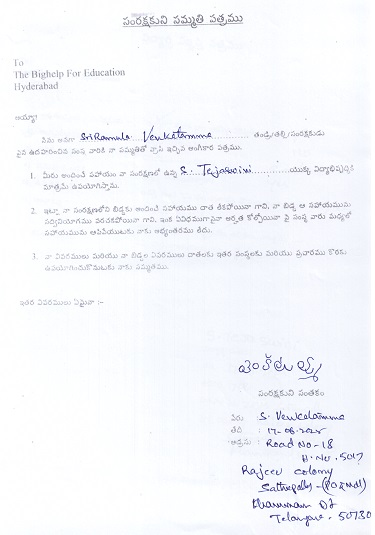 సంరక్షకుని సమ్మతి పత్రము
To
The Bighelp For Education
Hyderabad
అయ్యా!
నేను అనగా SriRamula Venkatamma తండ్రి/తల్లి/సంరక్షకుడు
పైన ఉదహరించిన సంస్థ వారికి నా సమ్మతితో వ్రాసి ఇచ్చిన అంగీకార పత్రము.
1. మీరు అందించే సహాయం నా సంరక్షణలో ఉన్న S. Tejaswini యొక్క విద్యాభివృద్ధికి
మాత్రమే ఉపయోగిస్తాను.
2. ఇట్లా నా సంరక్షణలోని బిడ్డకు అందించే సహాయము దాత ఉదహరించినా గాని, నా బిడ్డ ఆ సహాయమును
సద్వినియోగము పరచకపోయినా గాని, ఇంక ఏవిధముగానైనా అర్హత కోల్పోయినా పై సంస్థ వారు మధ్యలో
సహాయమును ఆపివేయుటకు నాకు అభ్యంతరము లేదు.
3. నా వివరములు మరియు నా బిడ్డల వివరములు దాతలకు ఇతర సంస్థలకు మరియు ప్రచారము కొరకు
ఉపయోగించుకొనుటకు నాకు సమ్మతము.
ఇతర వివరములు ఏమైనా :-
వెంకటమ్మ
సంరక్షకుని సంతకం
పేరు : S. Venkatamma
తేదీ : 17-06-2025
అడ్రసు : Road No-18
H.No. 5017
Rajeev Colony
Sathupally - (PO&Mdl)
Khammam Dt
Telangana -